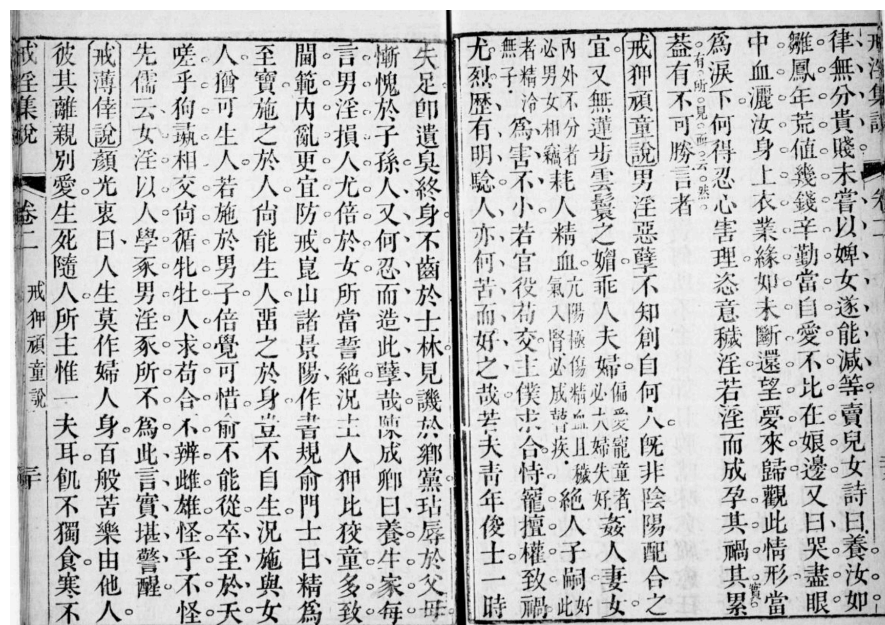 戒淫集說 卷二
律無分貴賤未嘗以婢女遂能減等賣兒女詩曰養汝如
雛鳳年荒值幾錢辛勤當自愛不比在娘邊又曰哭盡眼
中血灑汝身上衣業緣如未斷還望夢來歸觀此情形當
爲淚下何得忍心害理恣意穢淫若淫而成孕其禍其累實
葢有不可勝言者有所見而云然
戒狎頑童說男淫惡孽不知創自何人旣非陰陽配合之
宜又無蓮步雲鬟之媚乖人夫婦偏愛寵童者必夫婦失好姦人妻女
內外不分者必男女相竊耗人精血亢陽極傷精血且穢氣入腎必成瞽疾絕人子嗣好此
者精冷無子爲害不小若官役苟交主僕求合恃寵擅權致禍
尤烈歷有明騐人亦何苦而好之哉若夫靑年俊士一時
失足卽遺臭終身不齒於士林見譏於鄉黨玷辱於父母
慚愧於子孫人又何忍而造此孽哉陳成卿曰養生家每
言男淫損人尤倍於女所當誓絕況士人狎比狡童多致
閫範內亂更宜防戒崑山諸景陽作書規俞門士曰精爲
至寶施之於人尙能生人畱之於身豈不自生況施與女
人猶可生人若施於男子倍覺可惜俞不能從卒至於夭
嗟乎狗彘相交尙循牝牡人求苟合不辨雌雄怪乎不怪
先儒云女淫以人學豕男淫豕所不爲此言實堪警醒
戒薄倖說顏光衷曰人生莫作婦人身百般苦樂由他人
彼其離親別愛生死隨人所主惟一夫耳飢不獨食寒不
戒淫集說 卷二 戒狎頑童說 三